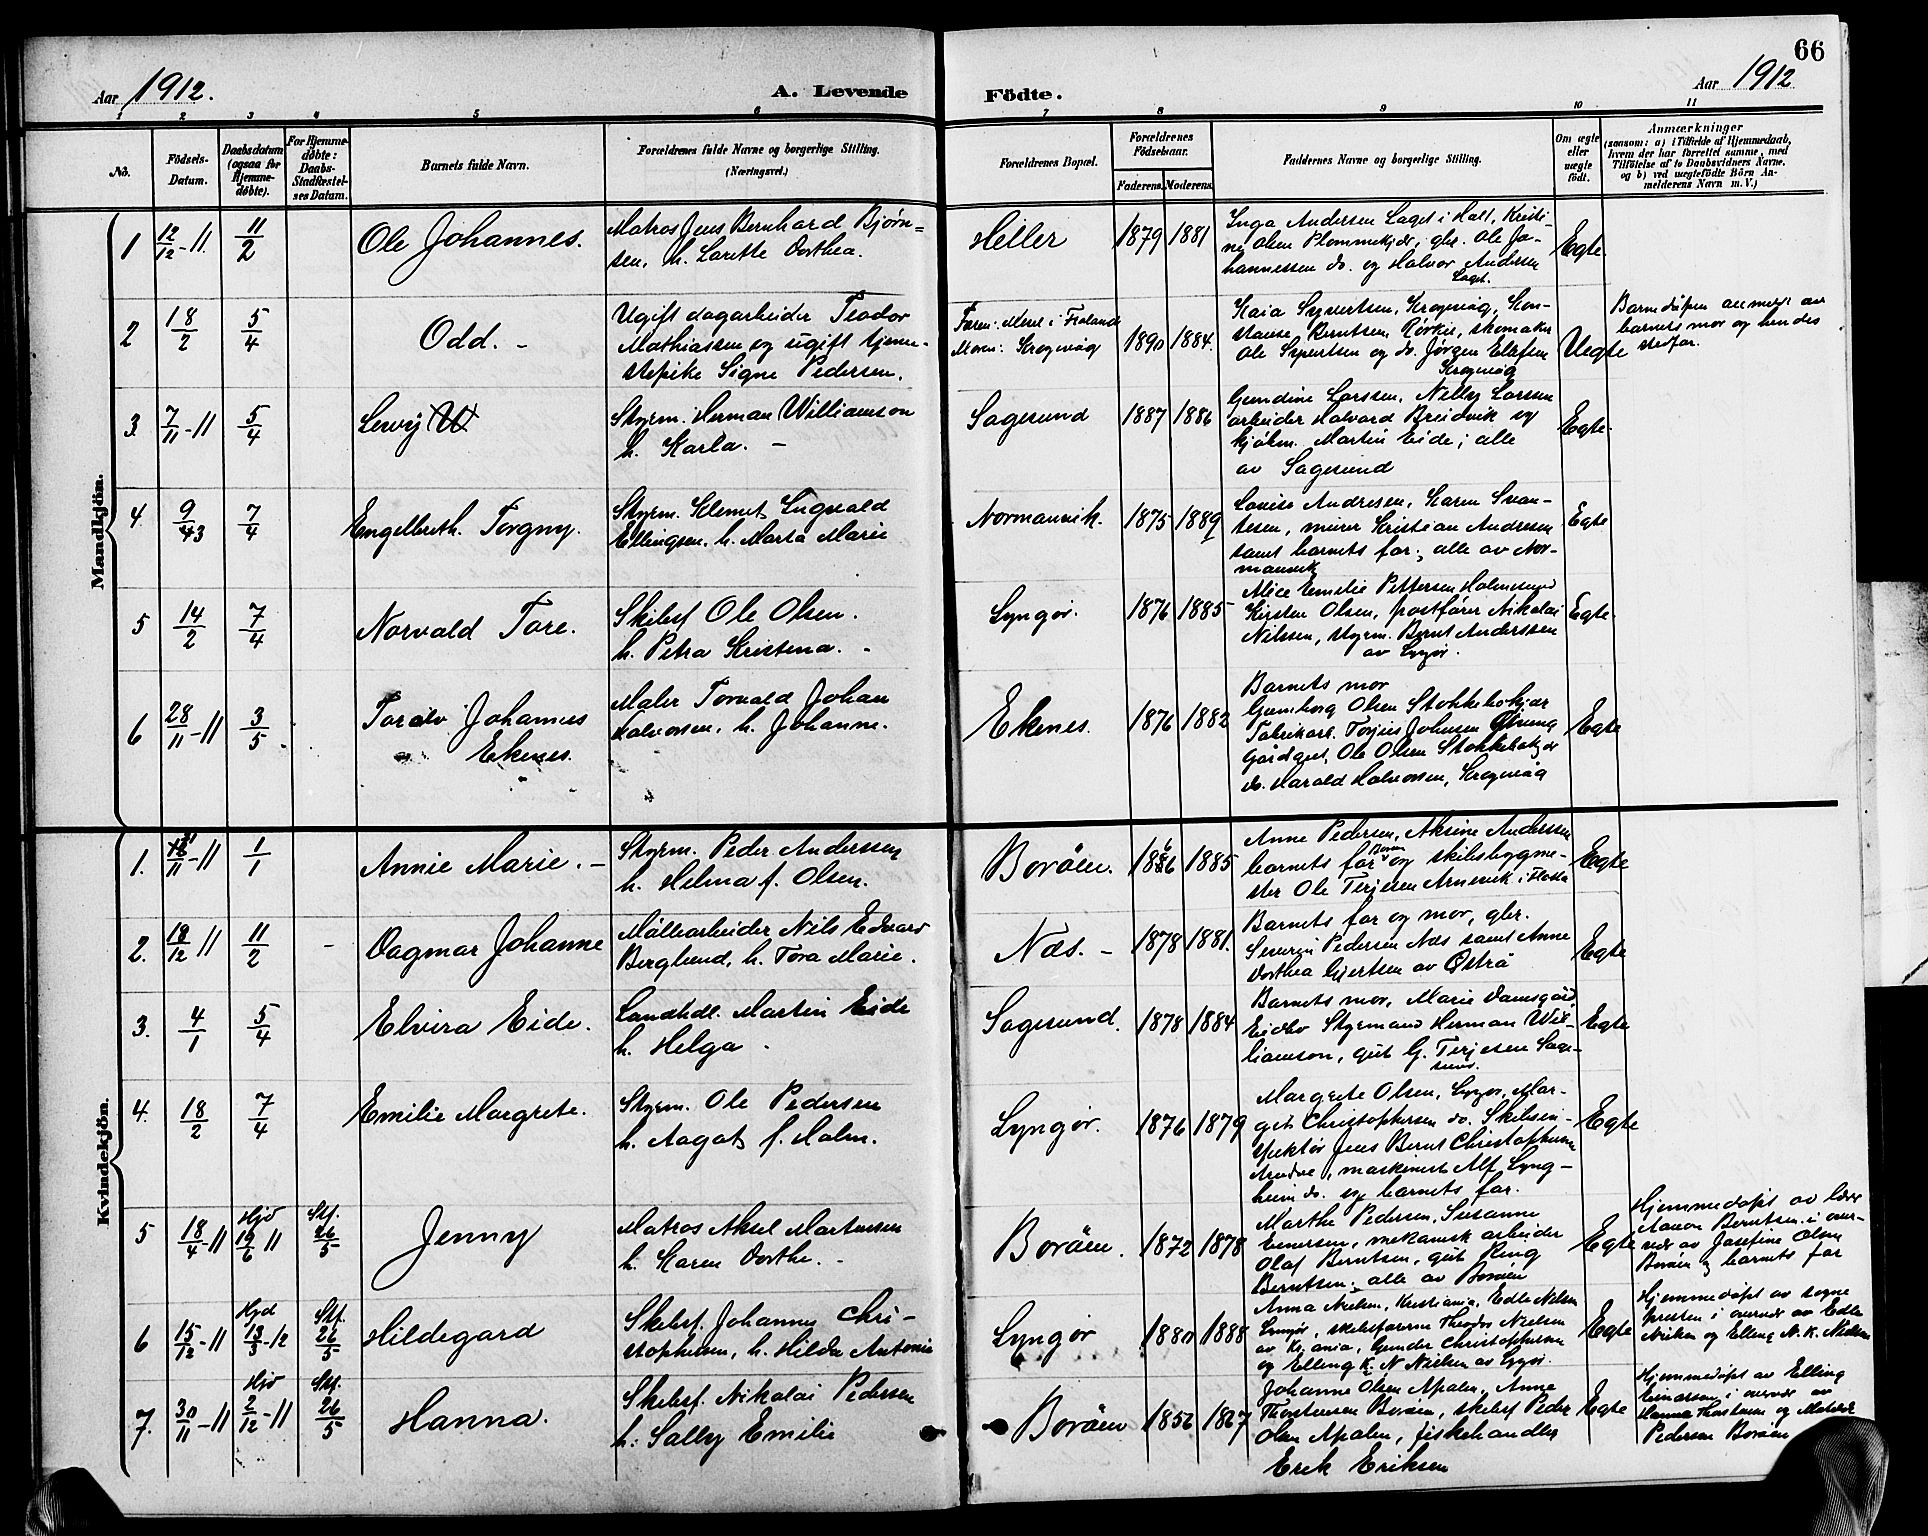 66
Aar 1912. A. Levende Födte. Aar 1912
1 2 3 4 5 6 7 8 9 10 11
No.
Födsels-Datum.
Daabsdatum (ogsaa for Hjemmedöbte).
For Hjemmedøbte: Daabs-Stadfæstelses Datum.
Barnets fulde Navn.
Forældrenes fulde Navne og borgerlige Stilling. (Næringsvei.)
Forældrenes Bopæl.
Forældrenes Födselsaar.
Faderens. Moderens.
Faddernes Navne og borgerlige Stilling.
Om ægte eller uægte født.
Anmærkninger
(saasom: a) i Tilfælde af Hjemmedaab,
hvem der har forrettet samme, med
Tilföielse af to Daabsvidners Navne,
og b) ved uægtefödte Börn Anmelderens Navn m. V.)
Mandkjön.
1 12/12-11 11/2 Ole Johannes.
Matros Jens Bernhard Bjørn=
sen, h. Lorette Dorthea.
Heller 1879 1881
Inga Andersen Laget i Holt, Kristi-
ne Olsen Plommekjær, gbr. Ole Jo-
hannessen do. og Halvor Andersen
Laget.
Egte.
2 18/2 5/4 Odd. -
Ugift dagarbeider Teodor
Mathiassen og ugift tjene-
stepike Signe Pedersen.
Faren: Messel i Froland
Moren: Krogvåg 1890 1884.
Kaia Syvertsen, Krogvåg, Kon-
stanse Berntsen Rørkil, skomaker
Ole Syvertsen og do. Jørgen Ellefsen
Krogvåg
Uegte
Barnedåpen anmeldt av
barnets mor og hendes
stedfar.
3. 7/11-11 5/4 Levy
Styrm. Herman Williamson
h. Karla. -
Sagesund 1887 1886
Gundine Larssen, Nelly Larssen
arbeider Halvard Breidvik og
kjøbm. Martin Eide; alle
av Sagesund
Egte.
4. 9/3 7/4 Engelbreth Torgny.
Styrm. Klemet Ingvald
Ellingsen. h. Marta Marie
Normanvik. 1875 1889
Lovise Andresen, Karen Svan-
tesen, murer Kristian Andresen
samt barnets far; alle av Nor-
manvik
Egte
5 14/2 7/4 Norvald Tore.
Skibsf Ole Olsen.
h. Petra Kristena. -
Lyngør. 1876 1885
Alice Emilie Pettersen Holmesund
Kirsten Olsen, postfører Nikolai
Nilssen, styrm. Bernt Anderssen
av Lyngør.
Egte.
6 28/11-11 3/5 Toralv Johannes
Ekenes.
Maler Torvald Johan
Halvorsen, h. Johanne.
Ekenes. 1876 1882
Barnets mor
Gunnborg Olsen Stokkebokjær
Fabrikarb. Torjus Johnsen
Gårdgut. Ole Olsen Stokkebokjær
do. Harald Halvorsen, Krogvåg
Egte
Kvindekjön.
1. /11-11 1/1 Annie Marie. -
Styrm. Peder Anderssen
h. Helma f. Olsen.
Borøen. 1886 1885
Anne Pedersen, Aksine Anderssen
barnets far og skibsbygme-
ster Ole Terjesen Arnevik i Flosta
Egte
2. 19/12 11 11/2 - Dagmar Johanne
Møllearbeider Nils Edvard
Berglund, h. Tora Marie.
Næs. - 1878 1881.
Barnets far og mor, gbr.
Severin Pedersen Næs samt Anne
Dorthea Gjertsen av Østrå
Egte
3. 4/1 5/4 Elvira Eide.
Landhdl. Martin Eide
h. Helga.
Sagesund. 1878 1884
Barnets mor, Marie Damsgård
Eidbo Styrmand Herman Wil-
liamson, gut G. Terjesen Sage-
sund.
Egte
4. 18/2 7/4 Emilie Margrete.
Styrm. Ole Pedersen
h. Aagot f. Holm.
Lyngør. 1876 1879
Margrete Olsen, Lyngør, Mar-
git Christophersen do. Skibsin-
spektør Jens Bernt Christophersen
Arendal, maskinist Alf Lyng-
heim do. og barnets far.
Egte
5 18/4-11 Hjd 19/6 11 Stf. 26/5 Jenny
Matros Aksel Martensen
h. Karen Dorthe. -
Borøen. 1872 1878
Marthe Pedersen, Susanne
Evensen, mekanisk arbeider
Olaf Berntsen, gut King
Berntsen; alle av Borøen
Egte
Hjemmedøpt av lærer
Aanon Berntsen i over-
vær av Josefine Olsen
Borøen og barnets far
6 15/12-11 Hjd 13/3-12 Stf. 26/5 Hildegard
Skibsf. Johannes Chri-
stophersen, h. Hilda Antonie
Lyngør 1880 1888
Anna Nielsen, Kristiania, Edle Nielsen
Lyngør, skibsførerne Theodor Nielsen
av Kr.ania, Gunder Christophersen
og Elling K. N Nielsen av Lyngør.
Egte
Hjemmedøpt av sogne
presten i overvær av Edle
Nielsen og Elling N. K. Nielsen
7. 30/11-11 Hjd 2/12-11 Stf. 26/5 Hanna.
Skibsf. Nikolai Pedersen
h. Sally Emilie
Borøen 1856 1867
Johanne Olsen Apalen, Anne
Thorstensen Borøen, skibsf Peder
Olsen Apalen, fiskehandler
Erek Eriksen
Egte
Hjemmedøpt av Elling
Einarsen i overvær av
Hanna Thorstensen og Matilde
Pedersen Borøen